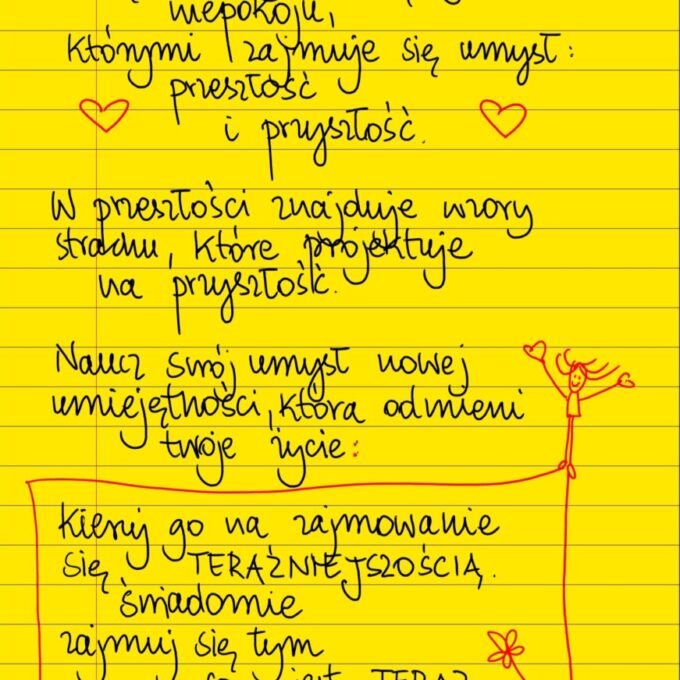 niepokoju,
którymi zajmuje się umysł:
przeszłość
i przyszłość.
W przeszłości znajduje wzory
strachu, które projektuje
na przyszłość.
Naucz swój umysł nowej
umiejętności, która odmieni
twoje życie:
Kieruj go na zajmowanie
się TERAŹNIEJSZOŚCIĄ.
Świadomie
zajmuj się tym
co jest TERAZ